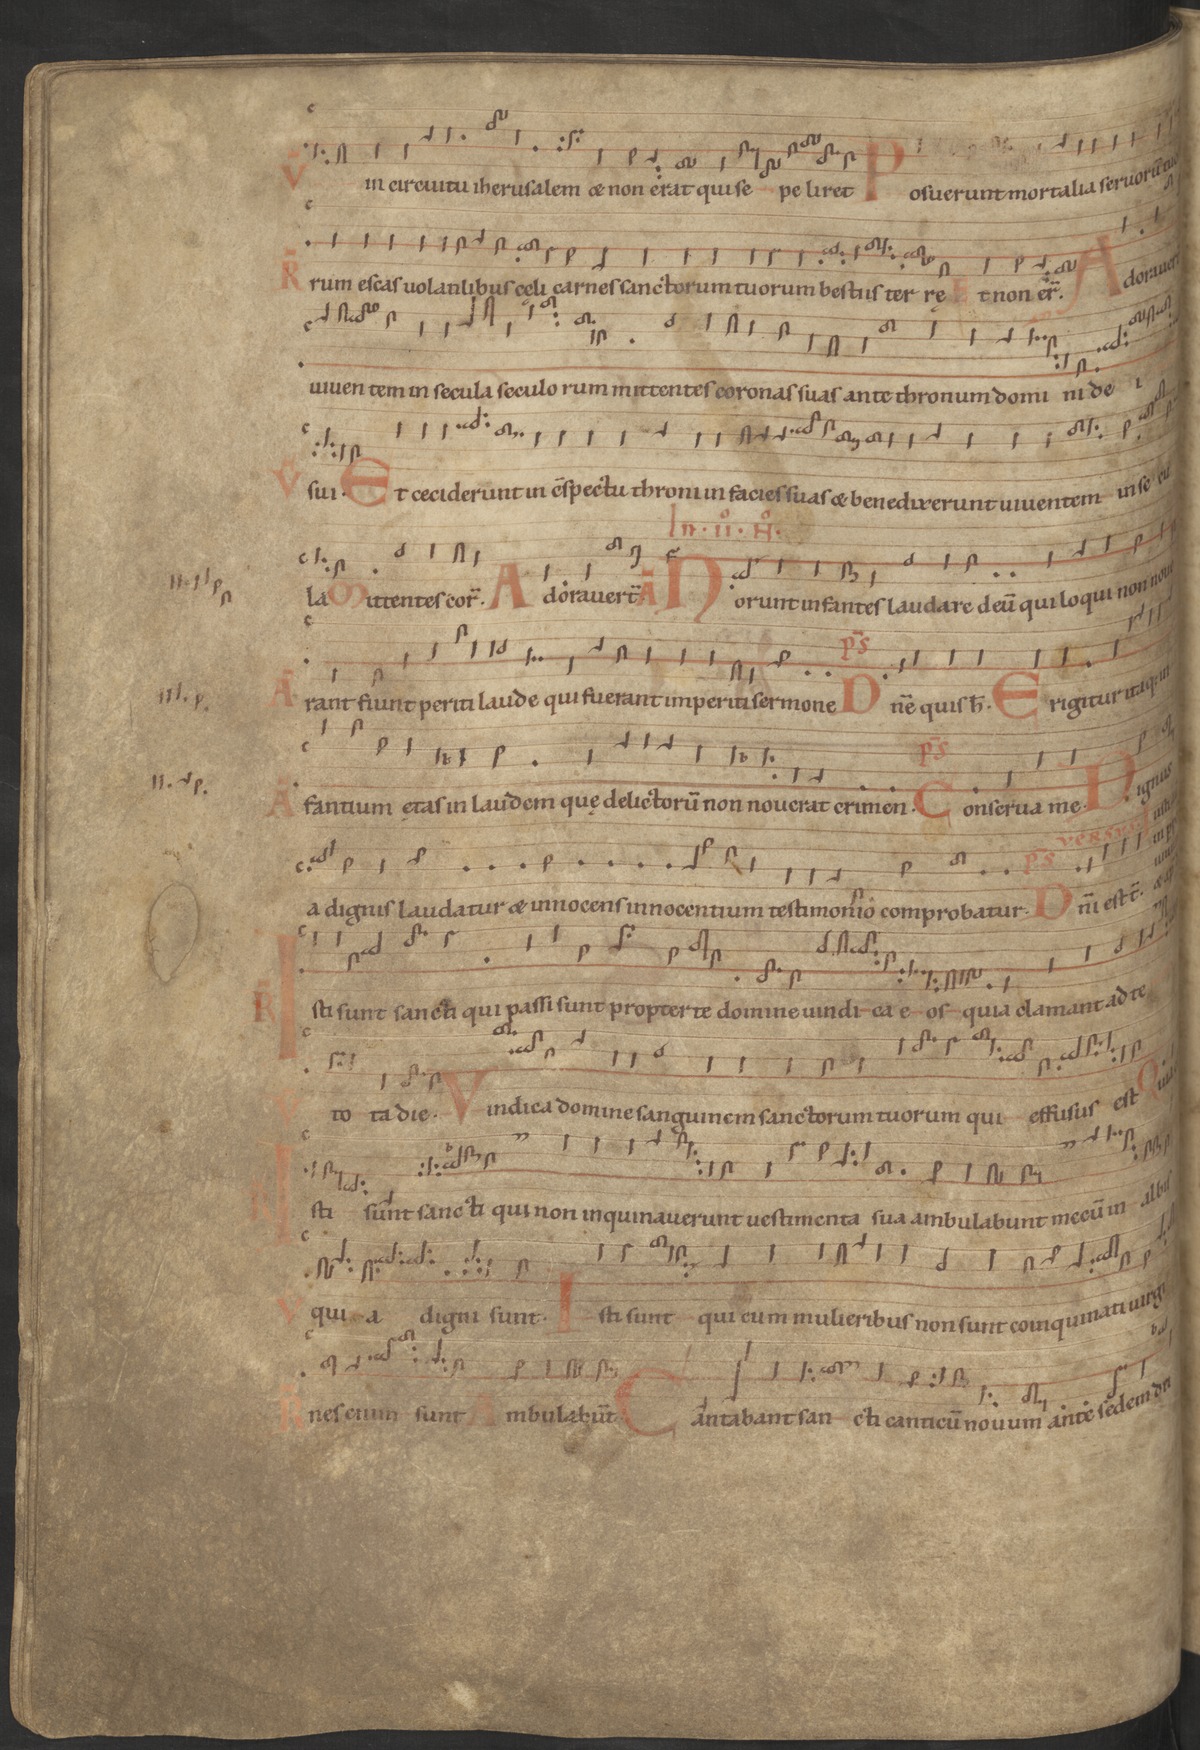 V̄ in circuitu iherusalem & non erat qui se pe liret Posuerunt mortalia seruorū tuo
R̄ rum escas uolatilibus cęli carnes sanctorum tuorum bestiis ter rę Et non er̄. Adorauer̄
uiuen tem in secula seculo rum mittentes coronas suas ante thronum domi ni de i
V̄ sui. Et ceciderunt in c̄spectu throni in facies suas & benedixerunt uiuentem in se cu
In · ii · N̊ ·
la Mittentes cor̄. Adorauert̄ Ā Norunt infantes laudare deū qui loqui non noue
p̄s
Ā rant fiunt periti laude qui fuerant imperiti sermone Dn̄e quis h̄. Erigitur itaq; in
p̄s
Ā fantium ętas in laudem quę delictorū non nouerat crimen. Conserua me. Dignus
versus
p̄s
a dignis laudatur & innocens innocentium testimonio comprobatur. Dn̄i est t̄.
R̄ Isti sunt sancti qui passi sunt propter te domine uindi ca e os quia clamant ad te
to ta die. Vindica domine sanguinem sanctorum tuorum qui effusus est Quia
R̄ Isti sunt sancti qui non inquinauerunt uestimenta sua ambulabunt mecū in albis
V̄ qui a digni sunt. Isti sunt qui cum mulieribus non sunt coinquinati uirgi
R̄ nes enim sunt Ambulabūt Cantabant san cti canticū nouum ante sedem dn̄i